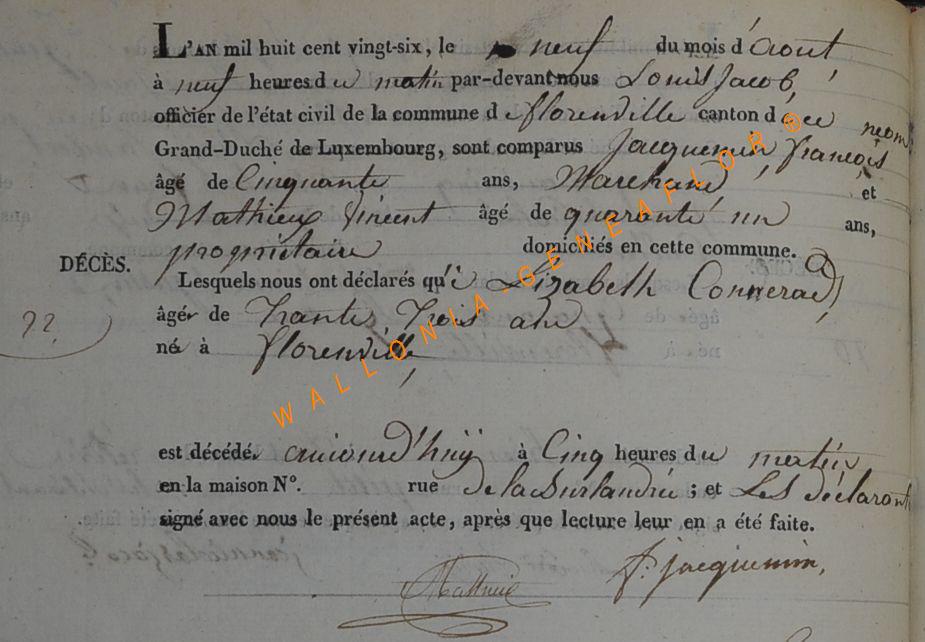 L'AN mil huit cent vingt-six, le neuf du mois d'Aout
à neuf heures du matin par-devant nous Louis Jacob,
officier de l'état civil de la commune de florenville canton d
Grand-Duché de Luxembourg, sont comparus Jacquemin françois
âgé de Cinquante ans, Marchand, et
Mathieu Vincent âgé de quarante un ans,
propriétaire domiciliés en cette commune.
DÉCÈS.
Lesquels nous ont déclarés qu'é Lizabeth Connerad,
22
âgée de Trante Trois ans
née à florenville
est décédé aujourd'huy à Cinq heures du matin
en la maison N°. rue de la ; et Les déclarant
signé avec nous le présent acte, après que lecture leur en a été faite.
Mathieu
f. jacquemin,
WALLONIA-GENEAFLOR ®